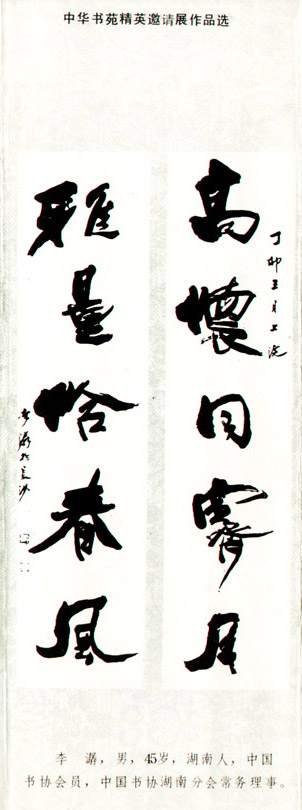 中华书苑精英邀请展作品选
丁卯五月上浣
高懷同霽月
雅量恰春風
李潺於長沙
李 潺，男，45岁，湖南人，中国
书协会员，中国书协湖南分会常务理事。